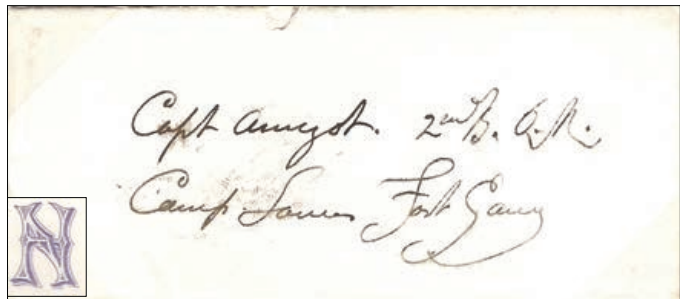 Capt Amyot. 2nd B. Q. R.
Camp. Lower Fort Garry